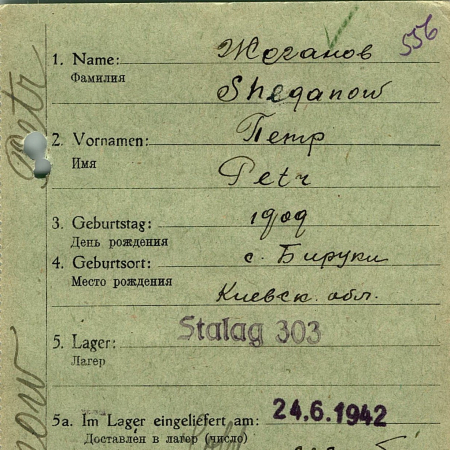 556
1. Name: Жоганов
Фамилия
Sheganow
2. Vornamen: Петр
Имя
Petr
3. Geburtstag: 1909
День рождения
4. Geburtsort: с. Бируки
Место рождения
Киевск. обл.
5. Lager: Stalag 303
Лагерь
5a. Im Lager eingeliefert am: 24.6.1942
Доставлен в лагерь (число)
Petr
now